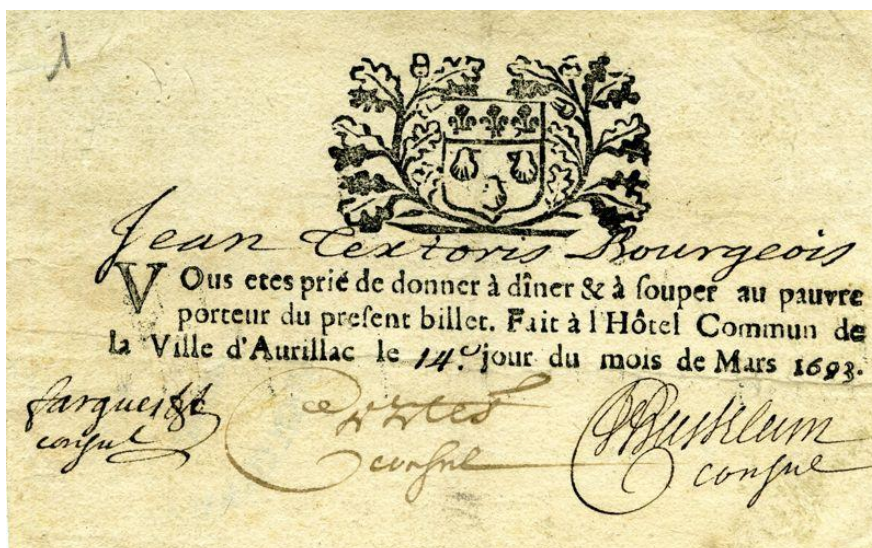 1
Jean Textoris Bourgeois
VOus etes prié de donner à dîner & à souper au pauvre
porteur du present billet. Fait à l'Hôtel Commun de
la Ville d'Aurillac le 14.e jour du mois de Mars 1693.
consul
consul
consul